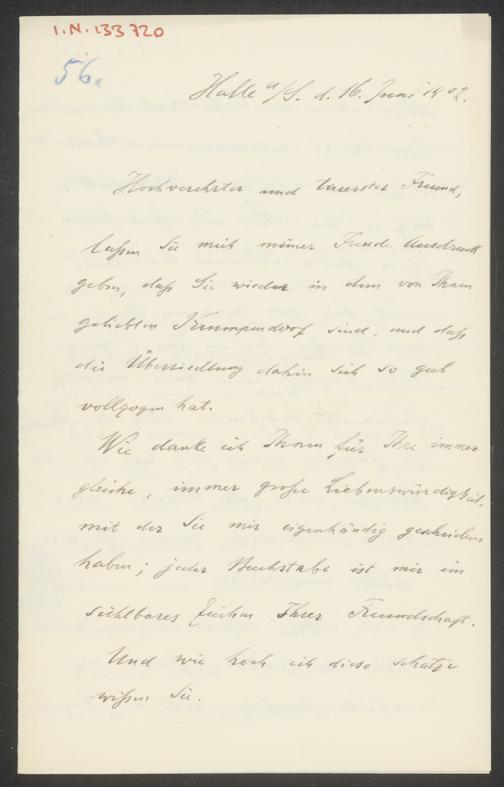 I.N. 133 720
56.
Halle a/S. d. 16. Juni 1902.
Hochverehrter und teuerster Freund,
laßen Sie mich meiner Freude Ausdruck
geben, daß Sie wieder in dem von Ihnen
geliebten Krumpendorf sind, und daß
die Übersiedlung dahin sich so gut
vollzogen hat.
Wie danke ich Ihnen für Ihre immer
gleiche, immer große Liebenswürdigkeit,
mit der Sie mir eigenhändig geschrieben
haben; jeder Buchstabe ist mir ein
sichtbares Zeichen Ihrer Freundschaft.
Und wie hoch ich diese schätze
wißen Sie.